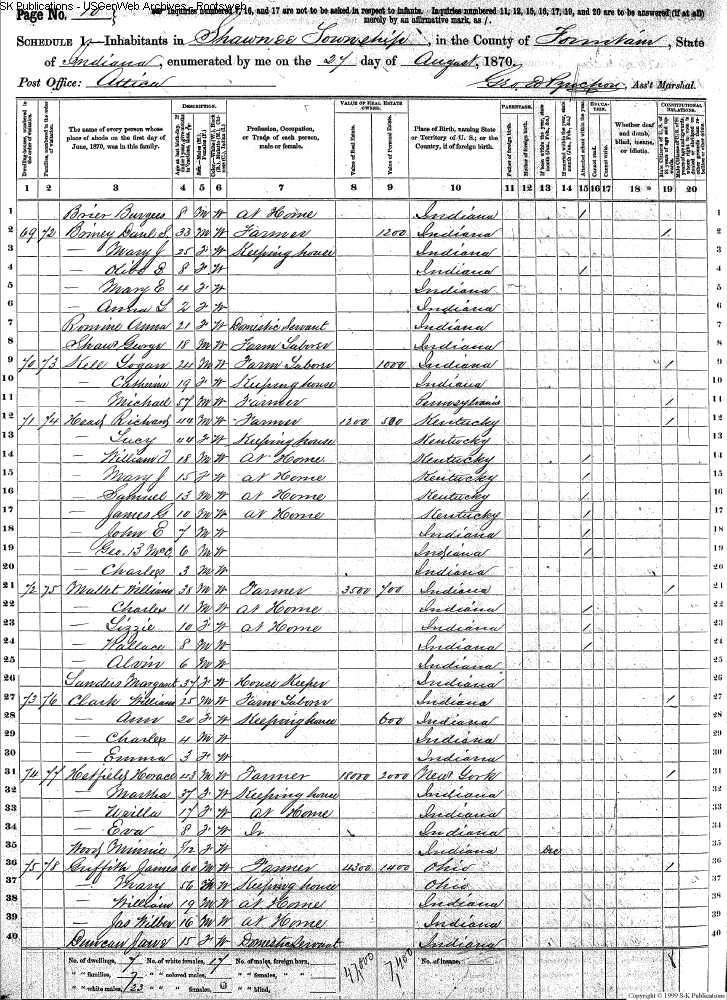 SK Publications - USGenWeb Archives - Rootsweb
Page No. 10
Inquiries numbered 7, 16, and 17 are not to be asked in respect to infants. Inquiries numbered 11, 12, 15, 16, 17, 19, and 20 are to be answered (if at all) merely by an affirmative mark, as /.
SCHEDULE 1.—Inhabitants in Shawnee Township, in the County of Fountain, State
of Indiana, enumerated by me on the 27 day of August, 1870.
Post Office: Attica Ass't Marshal.
Dwelling-houses, numbered in the order of visitation.
Families, numbered in the order of visitation.
The name of every person whose place of abode on the first day of June, 1870, was in this family.
DESCRIPTION.
Profession, Occupation, or Trade of each person, male or female.
VALUE OF REAL ESTATE OWNED
Value of Real Estate.
Value of Personal Estate.
Place of Birth, naming State or Territory of U. S.; or the Country, if of foreign birth.
PARENTAGE.
Father of foreign birth.
Mother of foreign birth.
EDUCATION.
Attended school within the year.
Cannot read.
Cannot write.
Whether deaf and dumb, blind, insane, or idiotic.
CONSTITUTIONAL RELATIONS.
1 2 3 4 5 6 7 8 9 10 11 12 13 14 15 16 17 18 19 20
1 Brier Burgess 8 M W At Home Indiana / 1
2 69 72 Briney Danl S. 33 M W Farmer 1200 Indiana / 2
3 — Mary J 25 F W Keeping house Indiana 3
4 — Olive B 8 F W Indiana / 4
5 — Mary E 4 F W Indiana 5
6 — Anna L 2 F W Indiana 6
7 Romine Anna 21 F W Domestic Servant Indiana 7
8 Shaw George 18 M W Farm Laborer Indiana 8
9 70 73 Kell Logan 24 M W Farm Laborer 1000 Indiana / 9
10 — Catherine 19 F W Keeping house Indiana 10
11 — Michael 57 M W Farmer Pennsylvania / 11
12 71 74 Head Richard 44 M W Farmer 1200 500 Kentucky / 12
13 — Lucy 44 F W Keeping house Kentucky 13
14 — William T 18 M W At Home Kentucky / 14
15 — Mary J 15 F W at Home Kentucky / 15
16 — Samuel 13 M W at Home Kentucky / 16
17 — James G 10 M W at Home Kentucky / 17
18 — John E 7 M W Indiana / 18
19 — Geo. B McC 6 M W Indiana / 19
20 — Charles 3 M W Indiana 20
21 72 75 Mallet William 38 M W Farmer 3500 700 Indiana / 21
22 — Charles 11 M W at Home Indiana / 22
23 — Lizzie 10 F W at Home Indiana / 23
24 — Wallace 8 M W Indiana / 24
25 — Alvin 6 M W Indiana 25
26 Sanders Margaret 37 F W House Keeper Indiana 26
27 73 76 Clark William 25 M W Farm Laborer Indiana / 27
28 — Ann 20 F W Keeping house 600 Indiana 28
29 — Charles 4 M W Indiana 29
30 — Emma 3 F W Indiana 30
31 74 77 Hatfield Horace 43 M W Farmer 18000 2000 New York / 31
32 — Martha 37 F W Keeping house Indiana 32
33 — Urilla 17 F W At Home Indiana 33
34 — Eva 8 F W Indiana 34
35 Wood Minnie /12 F W Indiana Dec 35
36 75 78 Griffith James 60 M W Farmer 4300 1400 Ohio / 36
37 — Mary 56 W Keeping house Ohio 37
38 — William 19 M W at Home Indiana 38
39 — Jas Wilber 16 M W at Home Indiana 39
40 Duncan Jane 15 F W Domestic Servant Indiana 40
No. of dwellings, 7 No. of white females, 17 No. of males, foreign born, 7,400 No. of insane, 8
" " families, 7 " " colored males, " " females,
" " white males, 23 " " females, " " blind,
Copyright © 1999 S-K Publications